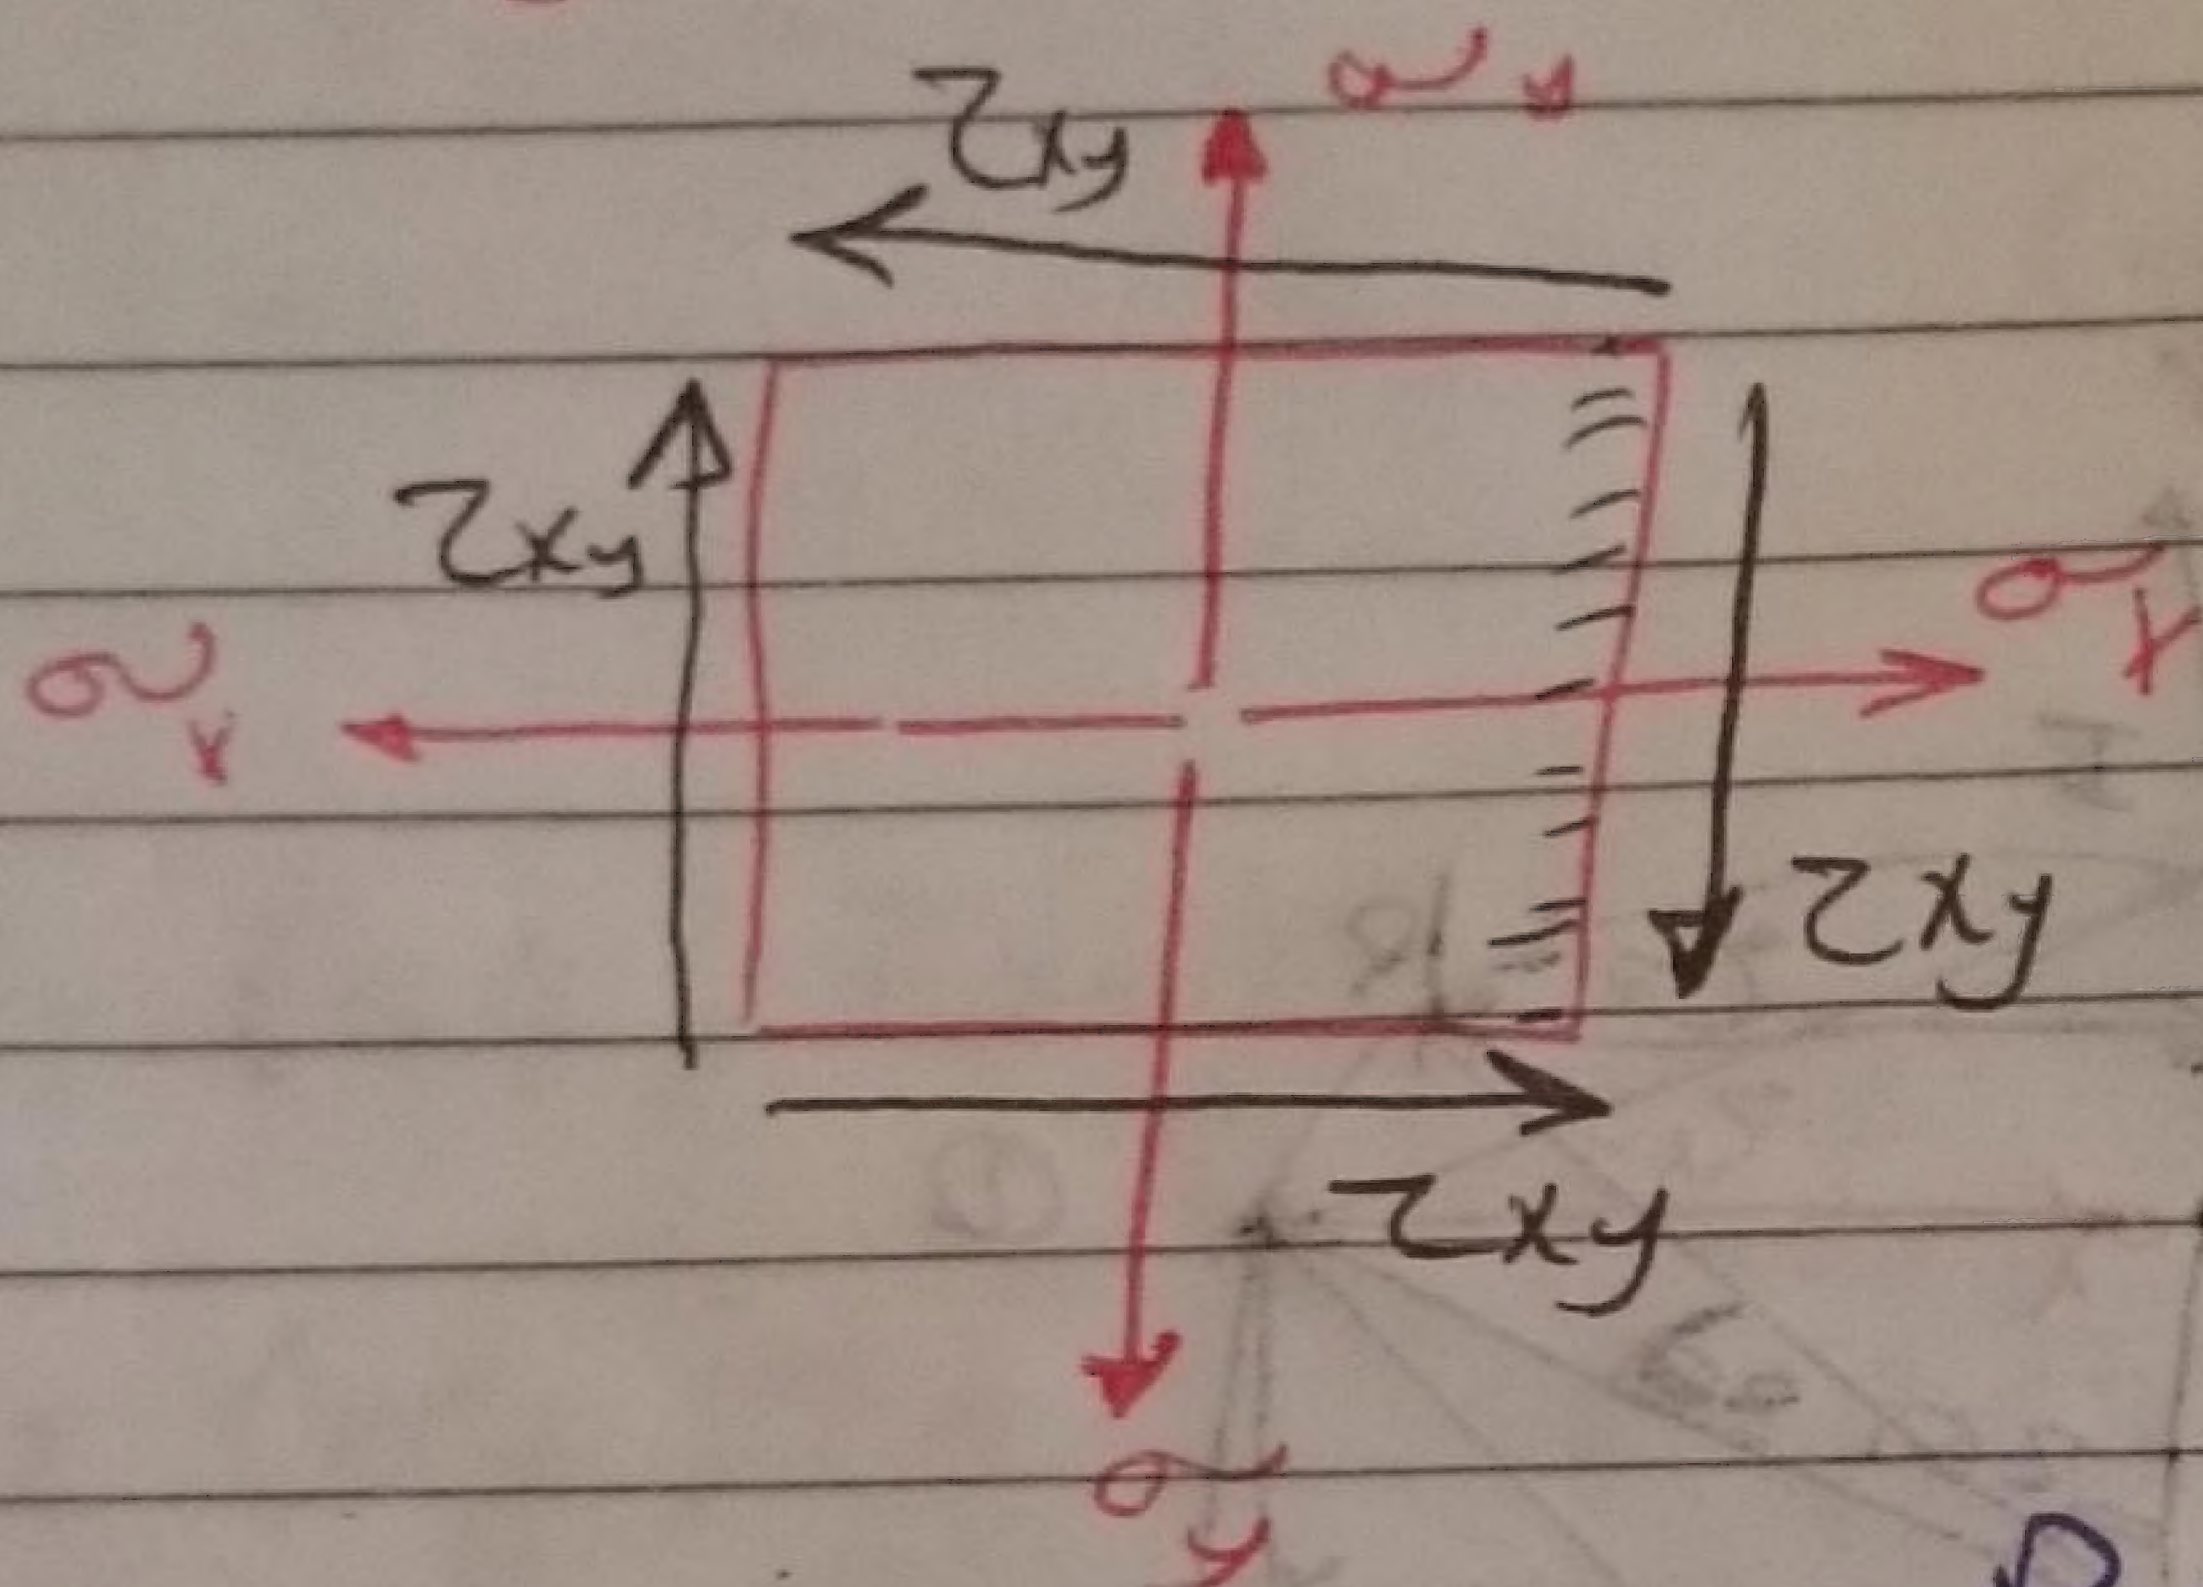 τxy
σ
τxy
σx
σx
τxy
τxy
σy